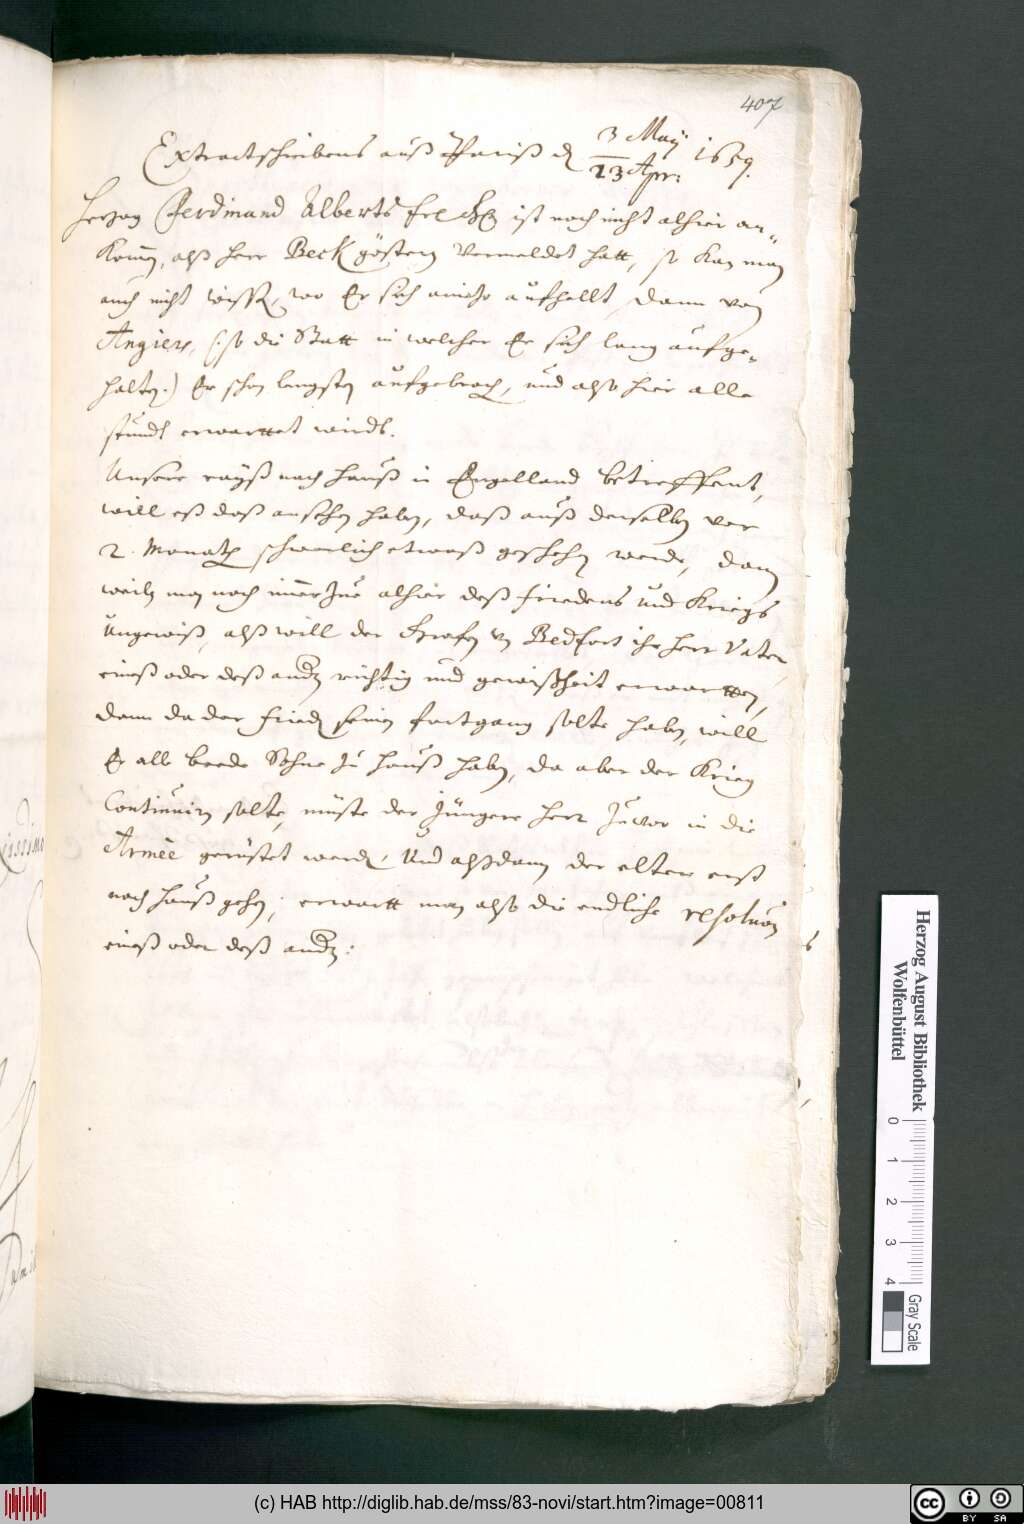 407
Extractschreibens auß Pariß d 3 May / 23 Apr: 1659.
Herzog Ferdinand Alberts ist noch nicht alhier an-
Komen, alß Herr Beck gestern Vermeldet hatt, so kan man
auch nicht wissen, wo Er sich aufhellt, dann von
Angiers, (: so die Statt in welcher Er sich lang aufge-
halten:) Er schon lengsten aufgebroch, und also hier alle
stundt erwarttet wirdt.
Unsere rayß nach Hauß in Engelland betreffent,
will eß daß ansehen haben, daß auß derselben vor
2. Monath schwerlich etwaß geschehen werde, dann
weiln man noch imer zue alhier deß friedens und Kriegs
Ungewiß, alß will der Grafen v Bedfort ihr Herr Vater,
eineß oder deß andern richtig und gewißheit erwartten,
dann da der fried seinen fortgang solte haben, will
Er alle beede Söhne zu Hauß haben, da aber der Krieg
Continuirn solte, müste der Jüngere Herr zuvor in die
Armée gerüstet werden, Und alßdann der elter erst
nach Hauß gehen; erwartt man also die endliche resolution
eineß oder deß andern:
Herzog August Bibliothek
Wolfenbüttel
0 1 2 3 4
Gray Scale
(c) HAB http://diglib.hab.de/mss/83-novi/start.htm?image=00811
cc BY SA